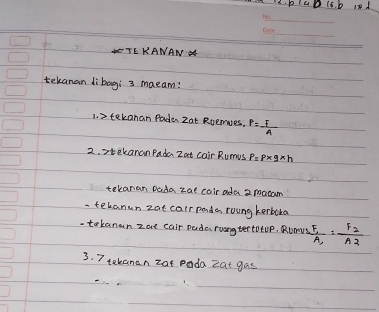 * TEKANAN *
tekanan dibagi 3 macam:
1.> tekanan Pada Zat Roemues, P = F/A
2.> tekanan Pada Zat cair Rumus P = P x g x h
tekanan pada zat cair ada 2 macam
- tekanan zat cair pada ruang berboka
- tekanan zat cair pada ruang tertotup. Rumus F1/A1 = F2/A2
3.> tekanan zat pada zat gas